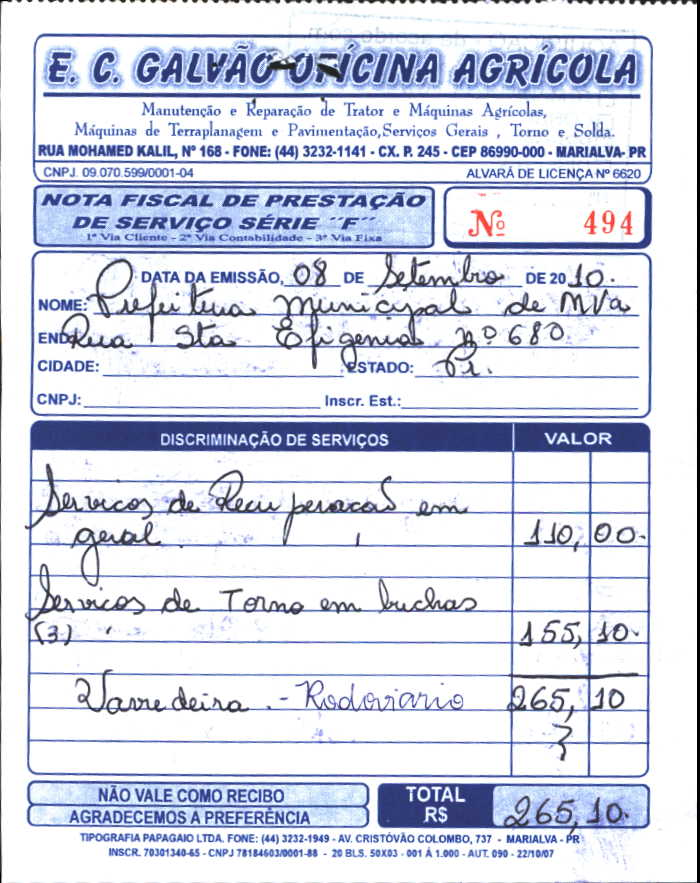 E. C. GALVÃO OFICINA AGRÍCOLA
Manutenção e Reparação de Trator e Máquinas Agrícolas,
Máquinas de Terraplanagem e Pavimentação,Serviços Gerais , Torno e Solda.
RUA MOHAMED KALIL, Nº 168 - FONE: (44) 3232-1141 - CX. P. 245 - CEP 86990-000 - MARIALVA- PR
CNPJ. 09.070.599/0001-04 ALVARÁ DE LICENÇA Nº 6620
NOTA FISCAL DE PRESTAÇÃO
DE SERVIÇO SÉRIE "F"
1ª Via Cliente - 2ª Via Contabilidade - 3ª Via Fixa
Nº 494
DATA DA EMISSÃO, 08 DE Setembro DE 2010.
NOME: Prefeitura Municipal de MVa
END: Rua Sta Efigenia nº 680
CIDADE: ESTADO: Pr.
CNPJ: Inscr. Est.:
DISCRIMINAÇÃO DE SERVIÇOS VALOR
Servicos de Recuperacaõ em
geral 110,00.
Servicos de Torno em buchas
(3) 155,10.
Varredeira - Rodoviario 265,10
NÃO VALE COMO RECIBO
AGRADECEMOS A PREFERÊNCIA
TOTAL
R$ 265,10.
TIPOGRAFIA PAPAGAIO LTDA. FONE: (44) 3232-1949 - AV. CRISTÓVÃO COLOMBO, 737 - MARIALVA - PR
INSCR. 70301340-65 - CNPJ 78184603/0001-88 - 20 BLS. 50X03 - 001 Á 1.000 - AUT. 090 - 22/10/07